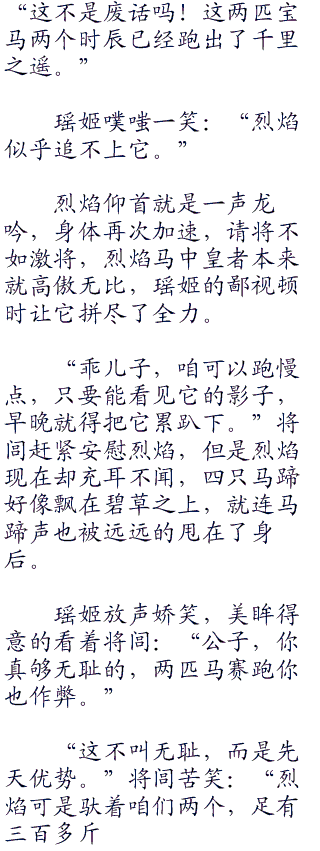 “这不是废话吗！这两匹宝
马两个时辰已经跑出了千里
之遥。”
瑶姬噗嗤一笑：“烈焰
似乎追不上它。”
烈焰仰首就是一声龙
吟，身体再次加速，请将不
如激将，烈焰马中皇者本来
就高傲无比，瑶姬的鄙视顿
时让它拼尽了全力。
“乖儿子，咱可以跑慢
点，只要能看见它的影子，
早晚就得把它累趴下。”将
闾赶紧安慰烈焰，但是烈焰
现在却充耳不闻，四只马蹄
好像飘在碧草之上，就连马
蹄声也被远远的甩在了身
后。
瑶姬放声娇笑，美眸得
意的看着将闾：“公子，你
真够无耻的，两匹马赛跑你
也作弊。”
“这不叫无耻，而是先
天优势。”将闾苦笑：“烈
焰可是驮着咱们两个，足有
三百多斤